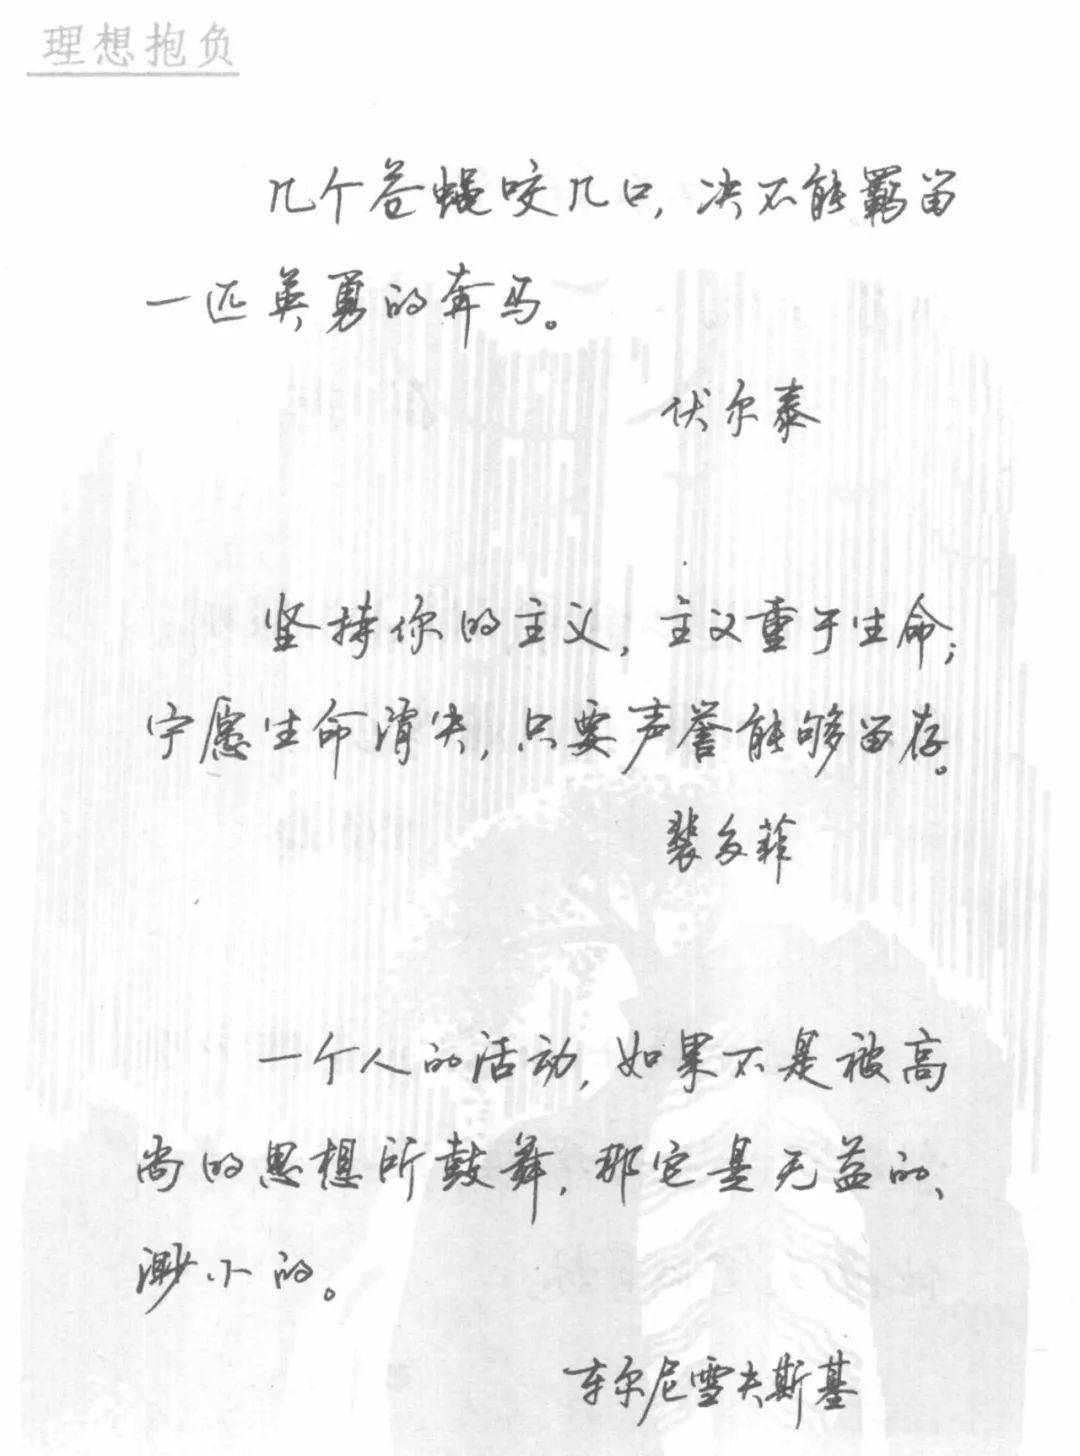 理想抱负
几个苍蝇咬几口,决不能羁留
一匹英勇的奔马。
伏尔泰
坚持你的主义,主义重于生命;
宁愿生命消失,只要声誉能够留存。
裴多菲
一个人的活动,如果不是被高
尚的思想所鼓舞,那它是无益的、
渺小的。
车尔尼雪夫斯基